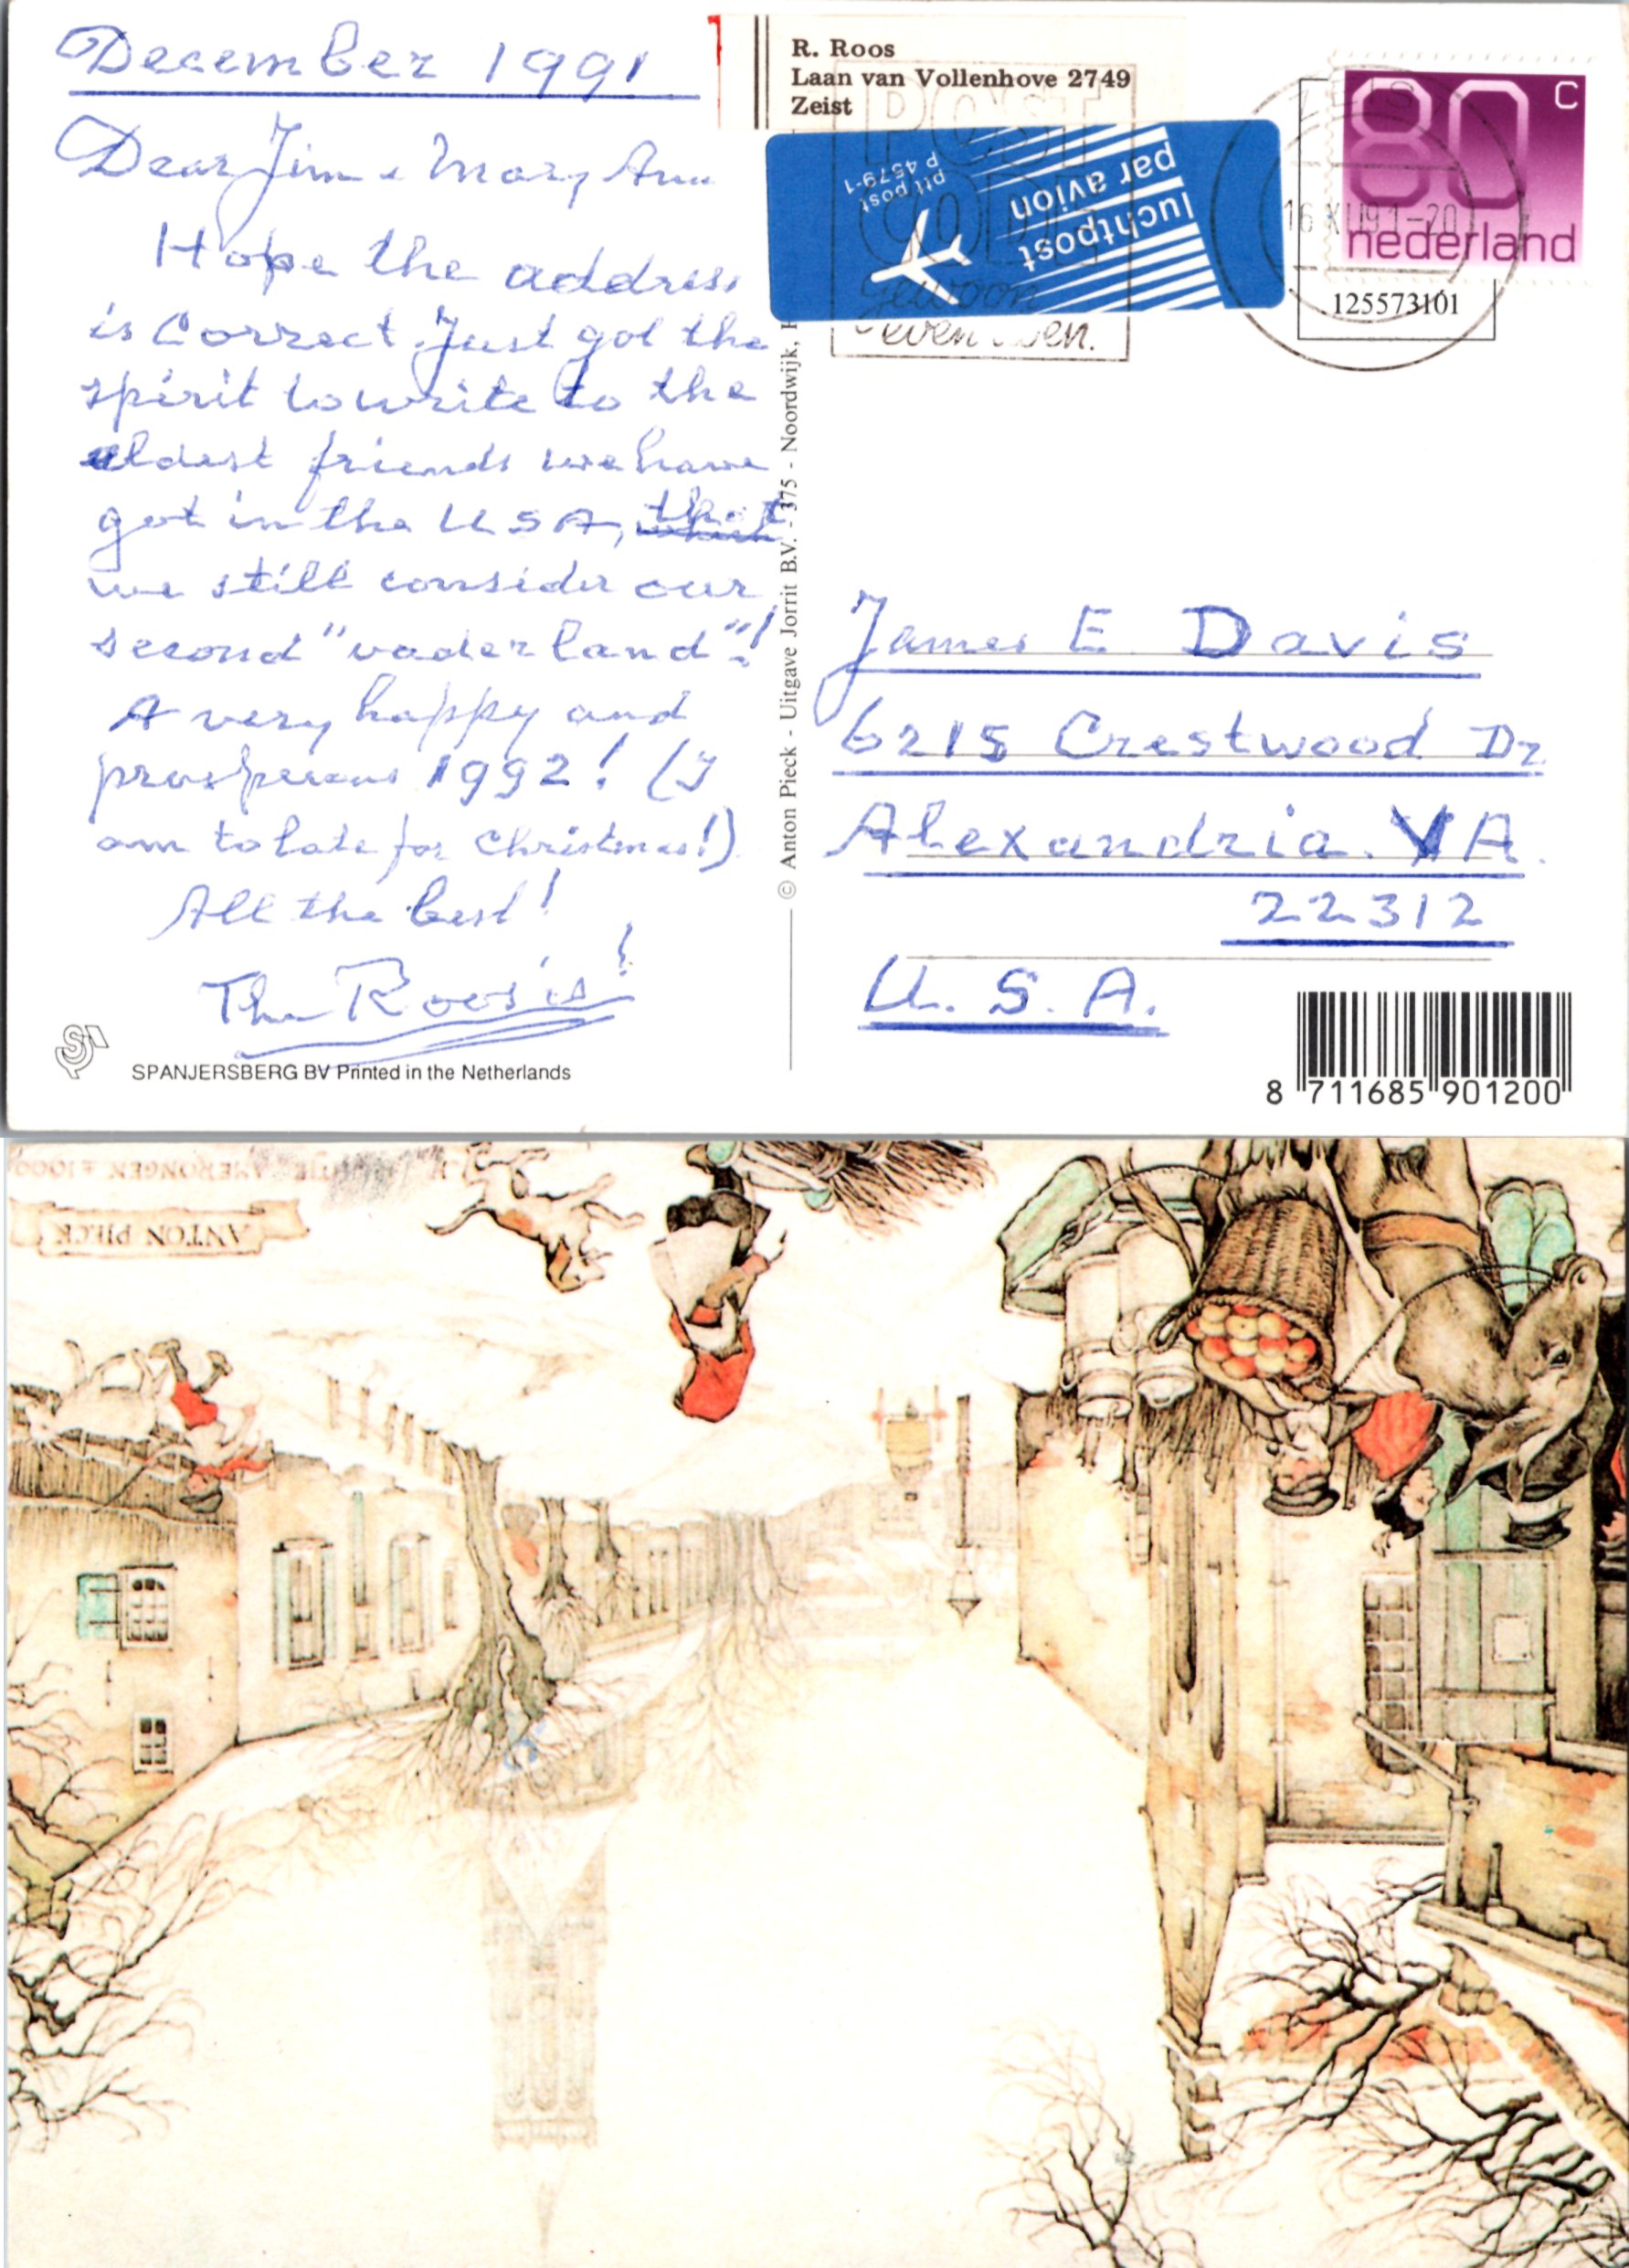 December 1991
Dear Jim & Mary Ann
Hope the address
is Correct. Just got the
spirit to write to the
oldest friends we have
got in the USA, that
we still consider our
second "vaderland"!
A very happy and
prosperous 1992! (I
am to late for Christmas!)
All the best!
The Roos's!
SPANJERSBERG BV Printed in the Netherlands
© Anton Pieck - Uitgave Jorrit B.V. - 375 - Noordwijk,
R. Roos
Laan van Vollenhove 2749
Zeist
luchtpost
par avion
ptt post
P 4579-1
POST
CODE
gewoon
even
ZEIST
16 XII 91-20
80 C
nederland
125573101
James E Davis
6215 Crestwood Dr
Alexandria. VA.
22312
U. S. A.
8 711685 901200
ANTON PIECK
AMERONGEN ±1900